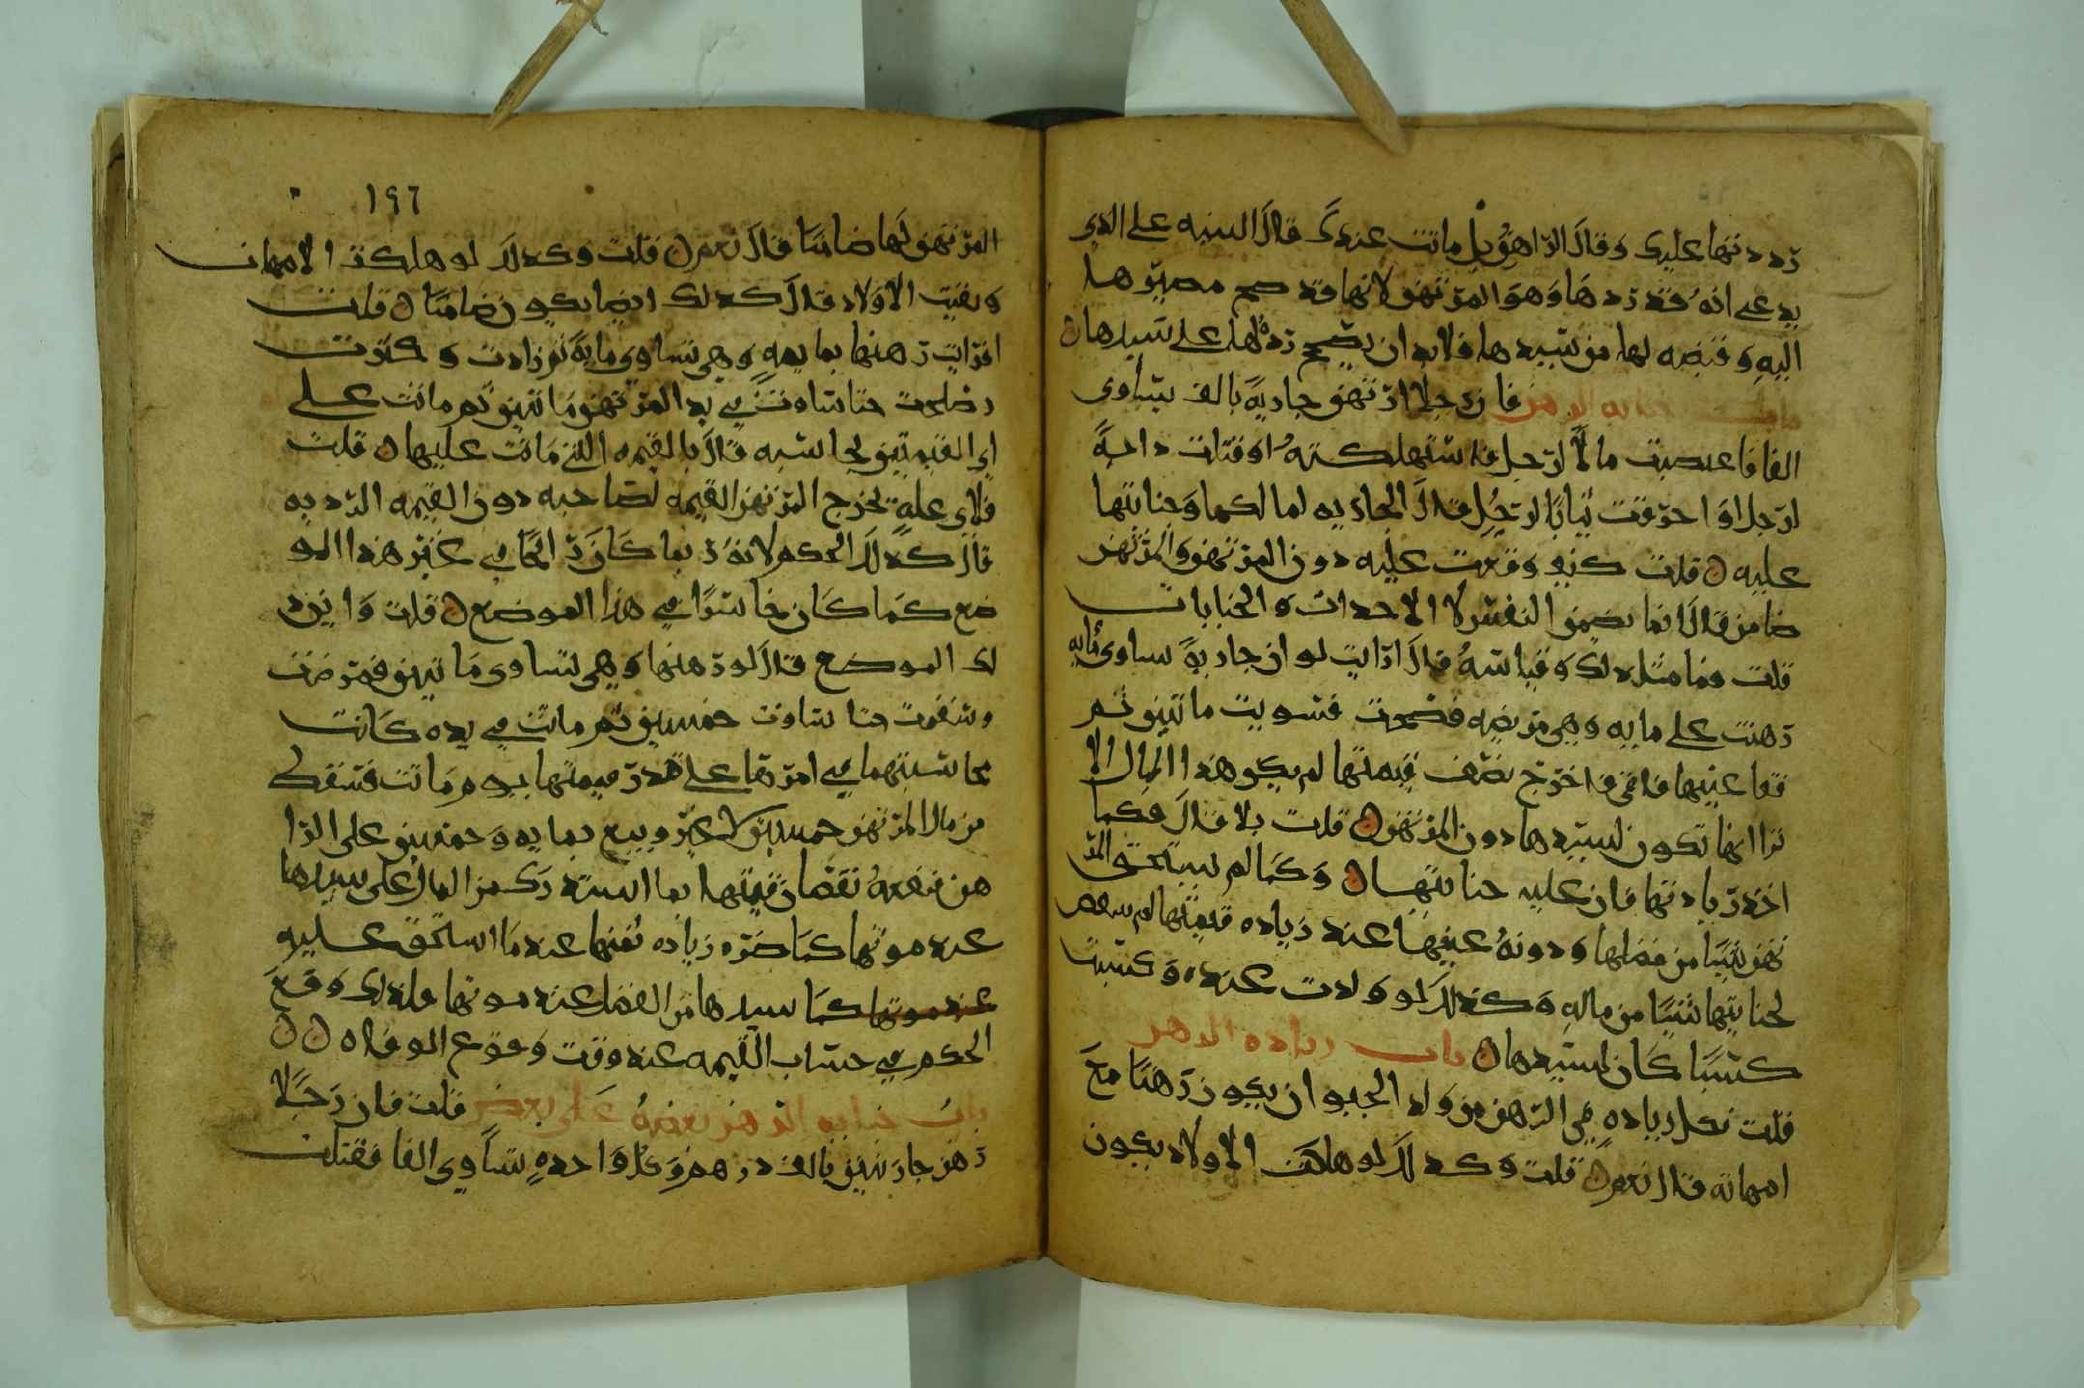 رددتها عليك وقال الراهن بل ماتت عندك قال البينه على الذي
يدعي انه قد ردها وهو المرتهن لانها قد صح مصيرها
اليه وقبضه لها من سيدها فلا بد ان يصح رده لها على سيدها
باب جنايه الرهن فان رجلا ارتهن جارية بالف تساوى
الفا فاغتصبت مالا لرجل فاستهلكته او قتلت دابة
لرجل او احرقت ثيابا لرجل قال الجاريه لمالكها وجنايتها
عليه قلت كيف وقعت عليه دون المرتهن والمرتهن
ضامن قال انما يضمن النفس لا الاحداث والجنايات
قلت وما مثل ذلك وقياسه قال ارايت لو ان جارية تساوى مايه
رهنت على مايه وهي مريضه فصحت فسويت مايتين ثم
فقا عينها فاقى فاخرج نصف قيمتها لم يكن هذا المال الا
ترا انها تكون لسيدها دون المرتهن قلت بلا قال فكما
اخذ زيادتها فان عليه جنايتها وكما لم يستحق المر
تهن شيا من فضلها ودونه عينها عند زياده قيمتها لم
لجنايتها شيا من ماله وكذلك لو ولدت عنده وكسبت
كسبا كان لسيدها باب زياده الرهن
قلت فكل زياده في الرهن من ولد الحيوان يكون رهنا مع
امهاته قال نعم قلت وكذلك لو هلكت الاولاد يكون
١٩٦
المرتهن لها ضامنا قال نعم قلت وكذلك لو هلكت الامهات
وبقيت الاولاد قال كذلك ايضا يكون ضامنا قلت
افرايت رهنها بمايه وهي تساوى مايه ثم زادت وكبرت
وصلحت حتا ساوت في يد المرتهن مايتين ثم ماتت على
اي القيمتين يحاسبه قال بالقيمه التي ماتت عليها قلت
فلاي علة يخرج المرتهن القيمه لصاحبه دون القيمه الرديه
قال كذلك الحكم لانه ربما كان رابحا في غير هذا المو
ضع كما كان خاسرا في هذا الموضع قلت واين ذ
لك الموضع قال لو رهنها وهي تساوى مايتين فمرضت
وسقمت حتا ساوت خمسين ثم ماتت في يده كانت
محاسبتهما في امرها على قدر قيمتها يوم ماتت فسقط
من مال المرتهن خمسين لا غير ويبيع بمايه وخمسين على الرا
هن فنفعه نقصان قيمتها بما استدرك من المال على سيدها
عند موتها كما ضره زياده ثمنها عند ما استحق عليه
عند موتها كما سيدها من الفضل عند موتها فلذلك وقع
الحكم في حساب القيمه عند وقت وقوع الوفاه
باب جنايه الرهن بعضه على بعض قلت فان رجلا
رهن جاريتين بالف درهم وكل واحده تساوي الفا فقتلت